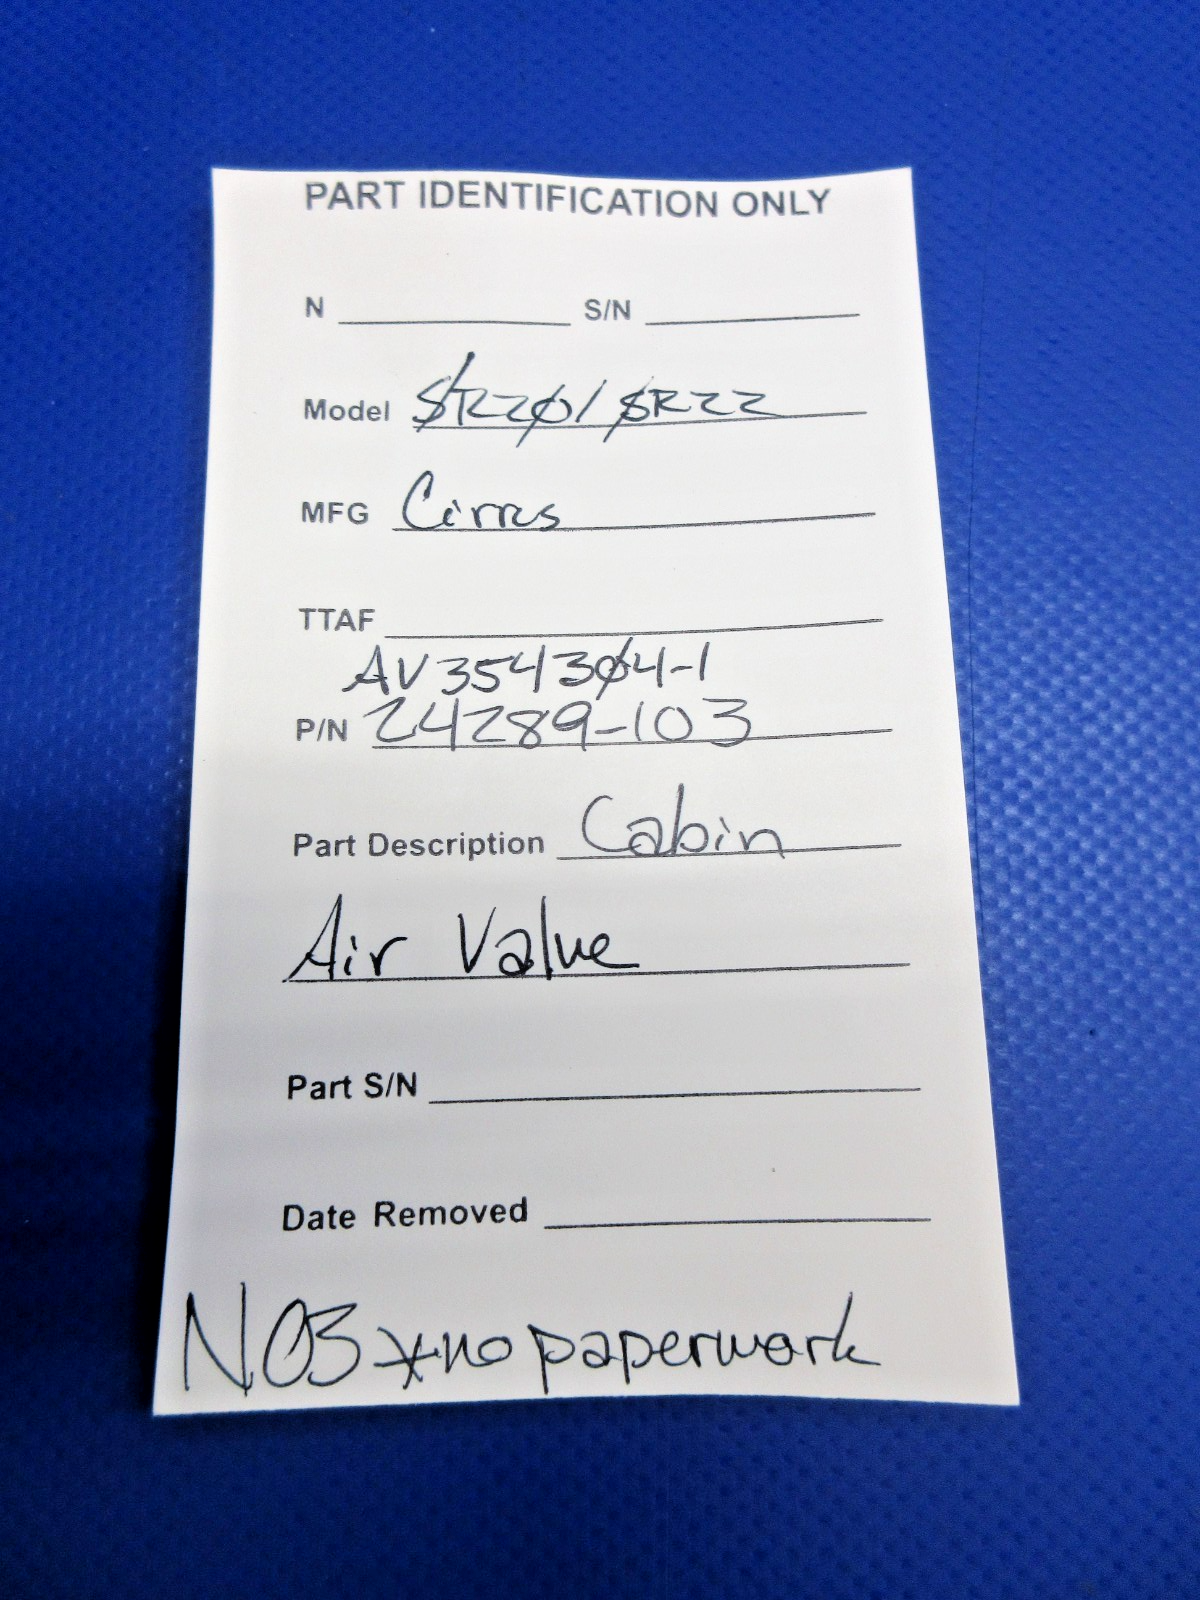 PART IDENTIFICATION ONLY
N S/N
Model SR20/SR22
MFG Cirrus
TTAF
AV354304-1
P/N 24289-103
Part Description Cabin
Air Valve
Part S/N
Date Removed
NOS *no paperwork